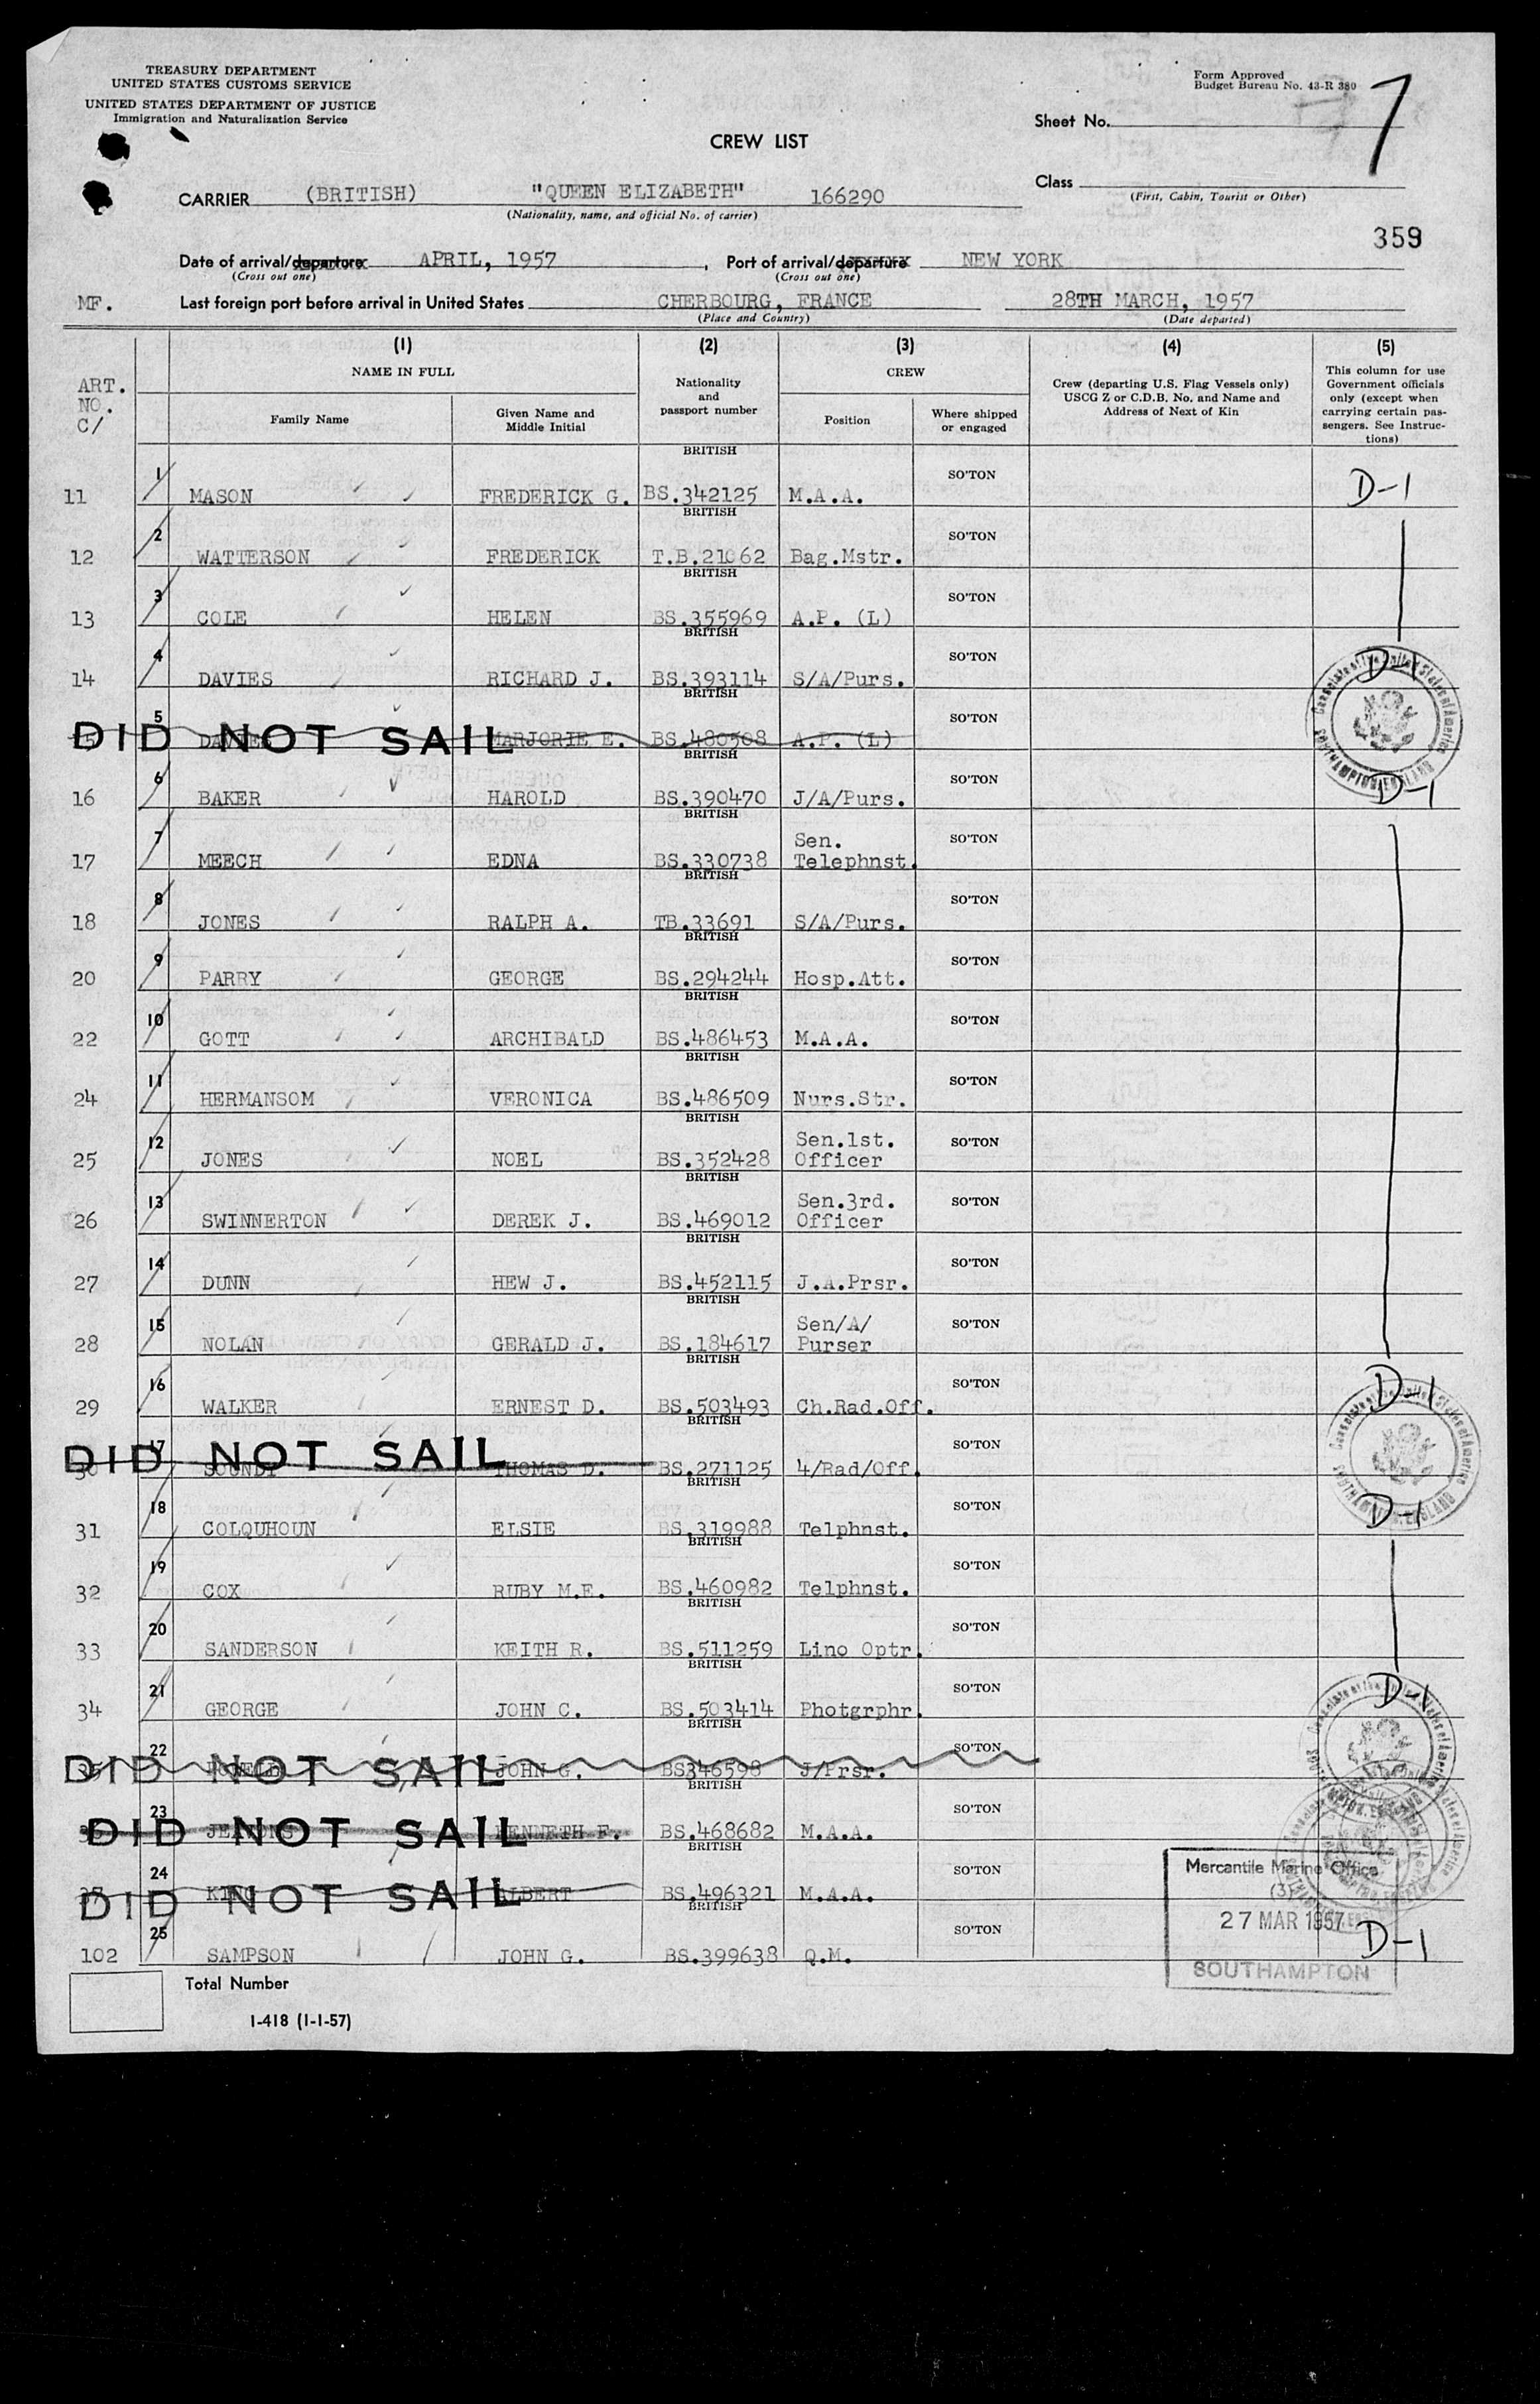 TREASURY DEPARTMENT
UNITED STATES CUSTOMS SERVICE
UNITED STATES DEPARTMENT OF JUSTICE
Immigration and Naturalization Service
Form Approved
Budget Bureau No. 43-R 380
Sheet No. 7
CREW LIST
Class
(First, Cabin, Tourist or Other)
CARRIER (BRITISH) "QUEEN ELIZABETH" 166290
(Nationality, name, and official No. of carrier)
359
Date of arrival/departure APRIL, 1957, Port of arrival/departure NEW YORK
(Cross out one) (Cross out one)
MF. Last foreign port before arrival in United States CHERBOURG, FRANCE 28TH MARCH, 1957
(Place and Country) (Date departed)
ART. NO. C/
(1) NAME IN FULL
Family Name
Given Name and Middle Initial
(2) Nationality and passport number
(3) CREW
Position
Where shipped or engaged
(4) Crew (departing U.S. Flag Vessels only) USCG Z or C.D.B. No. and Name and Address of Next of Kin
(5) This column for use Government officials only (except when carrying certain passengers. See Instructions)
11 1 MASON FREDERICK G. BRITISH BS.342125 M.A.A. SO'TON D-1
12 2 WATTERSON FREDERICK BRITISH T.B.21062 Bag.Mstr. SO'TON
13 3 COLE HELEN BRITISH BS.355969 A.P. (L) SO'TON
14 4 DAVIES RICHARD J. BRITISH BS.393114 S/A/Purs. SO'TON D-1
15 5 DAVIES MARJORIE E. BRITISH BS.480508 A.P. (L) SO'TON
DID NOT SAIL
Consulate of the United States of America
SOUTHAMPTON, ENGLAND
16 6 BAKER HAROLD BRITISH BS.390470 J/A/Purs. SO'TON D-1
17 7 MEECH EDNA BRITISH BS.330738 Sen. Telephnst. SO'TON
18 8 JONES RALPH A. BRITISH TB.33691 S/A/Purs. SO'TON
20 9 PARRY GEORGE BRITISH BS.294244 Hosp.Att. SO'TON
22 10 GOTT ARCHIBALD BRITISH BS.486453 M.A.A. SO'TON
24 11 HERMANSOM VERONICA BRITISH BS.486509 Nurs.Str. SO'TON
25 12 JONES NOEL BRITISH BS.352428 Sen.1st. Officer SO'TON
26 13 SWINNERTON DEREK J. BRITISH BS.469012 Sen.3rd. Officer SO'TON
27 14 DUNN HEW J. BRITISH BS.452115 J.A.Prsr. SO'TON
28 15 NOLAN GERALD J. BRITISH BS.184617 Sen/A/ Purser SO'TON
29 16 WALKER ERNEST D. BRITISH BS.503493 Ch.Rad.Off. SO'TON D-1
30 17 THOMAS D. BRITISH BS.271125 4/Rad/Off. SO'TON
DID NOT SAIL
Consulate of the United States of America
SOUTHAMPTON, ENGLAND
31 18 COLQUHOUN ELSIE BRITISH BS.319988 Telphnst. SO'TON D-1
32 19 COX RUBY M.E. BRITISH BS.460982 Telphnst. SO'TON
33 20 SANDERSON KEITH R. BRITISH BS.511259 Lino Optr. SO'TON
34 21 GEORGE JOHN C. BRITISH BS.503414 Photgrphr. SO'TON D-1
35 22 JOHN G. BRITISH BS346598 J/Prsr. SO'TON
DID NOT SAIL
36 23 KENNETH F. BRITISH BS.468682 M.A.A. SO'TON
DID NOT SAIL
37 24 ALBERT BRITISH BS.496321 M.A.A. SO'TON
DID NOT SAIL
102 25 SAMPSON JOHN G. BRITISH BS.399638 Q.M. SO'TON D-1
Mercantile Marine Office
(3)
27 MAR 1957
SOUTHAMPTON
Total Number
I-418 (1-1-57)